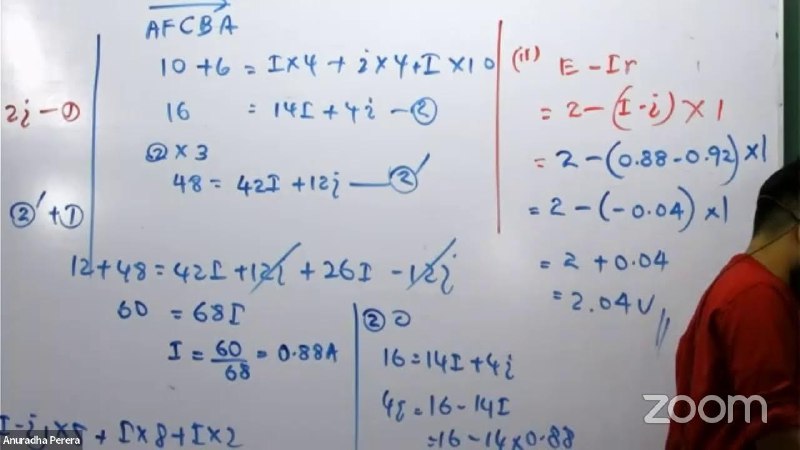 AFCBA
10 + 6 = I×4 + i×4 + I×10
16 = 14I + 4i — ②
② × 3
48 = 42I + 12i — ②′
2i — ①
②′ + ①
12 + 48 = 42I + 12i + 26I - 12i
60 = 68I
I = 60/68 = 0.88A
I-i)×5 + I×8 + I×2
② ⊃
16 = 14I + 4i
4i = 16 - 14I
= 16 - 14×0.88
(ii) E - Ir
= 2 - (I-i) × 1
= 2 - (0.88 - 0.92) × 1
= 2 - (-0.04) × 1
= 2 + 0.04
= 2.04V //
zoom
Anuradha Perera